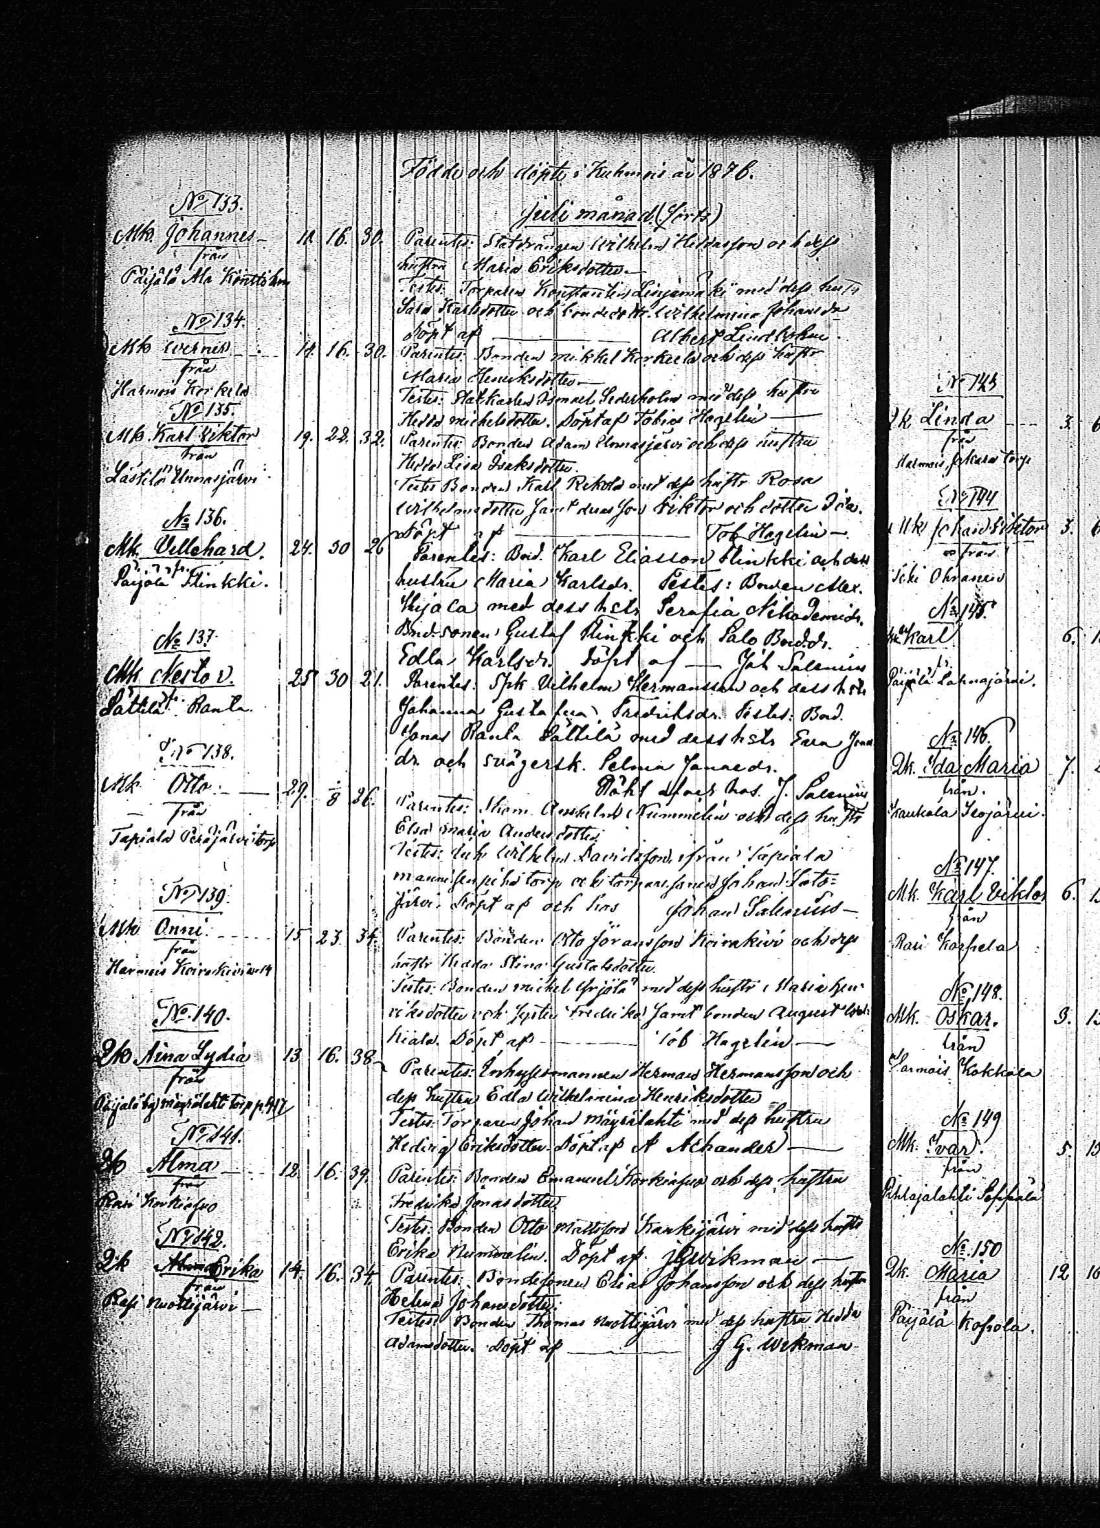 Födde och döpte i Kuhmois år 1876.
juli månad (forts)
No 133.
Mk. Johannes 11. 16. 30.
från
Päijälä Ala Konttila
Parentes: Statdrängen Wilhelm och dess
hustru Maria Eriksdotter
Testes: Torparen Konstantin Linjamäki med dess hustr
Sara Karlsdotter och bondedottr. Wilhelmina Johansdr
Döpt af Albert Lindholm.
No 134.
Mk Verner 14. 16. 30.
från
Harmois Korkela
Parentes: Bonden Mikkel Korkela och dess hustr
Maria Henriksdotter
Testes: Statkarlen Ismael Sederholm med dess hustru
Hedda Michelsdotter. Döpt af Tobias Hagelin
No 135.
Mk. Karl Viktor 19. 22. 32.
från
Lästilä Unnasjärvi
Parentes: Bonden Adam Unnasjärvi och dess hustru
Hedda Lisa Isaksdotter.
Testes Bonden Karl Rekola med dess hustr Rosa
Wilhelmsdotter samt deras son Viktor och dotter Ida.
Döpt af Tob Hagelin
No 136.
Mk. Villehard. 24. 30 26
Päijälä Flinkki.
Parentes: Bond. Karl Eliasson Flinkki och dess
hustru Maria Karlsdr. Testes: Bonden Alex.
med dess hstr Serafia Nikodemidr.
Bond.sonen Gustaf Flinkki och Bond.dr.
Edla Karlsdr. Döpt af Joh Salenius
No 137.
Mk Nestor. 25 30 21.
Sättilä Ranta
Parentes: Spk Vilhelm Hermansson och dess hstr
Johanna Gustafva Fredriksdr. Testes: Bond.
Jonas Ranta Sättilä med dess hstr Eva Jonas
dr. och svägersk. Selma Jonaedr.
Döpt J. Salenius
No 138.
Mk Otto 29. 8 26.
från
Tapiala Peräjärvi torp
Parentes: Nummelin och dess hustr
Elsa Maria Andersdotter
Testes: Wilhelm Davidsson från Tapiala
torp och torparesonen Johan Soto=
järvi. Döpt af och hos Johan Salenius
No 139.
Mk Onni 15. 23. 34.
från
Harmois Koirakivi
Parentes: Bonden Otto Göransson Koirakivi och dess
hustr Hedda Stina Gustafsdotter.
Testes: Bonden Michel Yrjölä med dess hustr Maria Hen=
riksdotter och Fredrika samt bonden August
Döpt af Tob Hagelin
No 140.
Qk Aina Lydia 13 16. 38
från
Päijälä by Mäyrälahti torp p. 417
Parentes: Inhysesmannen Herman Hermansson och
dess hustru Edla Wilhelmina Henriksdotter
Testes: Torparen Johan Mäyrälahti med dess hustru
Hedvig Eriksdotter. Döpt af A Achander
No 141.
Qk Alma 12. 16. 39.
från
Pasi Korkiasuo
Parentes: Bonden Emanuel Korkiasuo och dess hustru
Fredrika Jonasdotter
Testes: Bonden Otto Mattsson Kankijärvi med dess hustr
Erika Nummelin. Döpt af J G Wikman
No 142.
Qk Erika 14. 16. 34.
från
Pasi Nuottijärvi
Parentes: Bondesonen Elias Johansson och dess hustru
Helena Johansdotter.
Testes: Bonden Thomas Nuottijärvi med dess hustru Hedda
Adamsdotter. Döpt af J G. Wikman
No 143
Qk Linda 3.
från
Harmois Jokara torp
No 144
Mk Johan Viktor 3.
från
No 145
Karl 6.
Päijälä Lahnajärvi.
No 146
Qk. Ida Maria 7.
från.
Kauhala Isojärvi.
No 147.
Mk. Karl Viktor 6. 1
från
Pasi Karpela
No 148.
Mk. Oskar. 3. 13
från
Harmois Kokkola
No 149
Mk. Ivar. 5. 13
från
Puhajalahti Seppälä
No. 150
Qk. Maria 12 16
från
Päijälä Kossola.